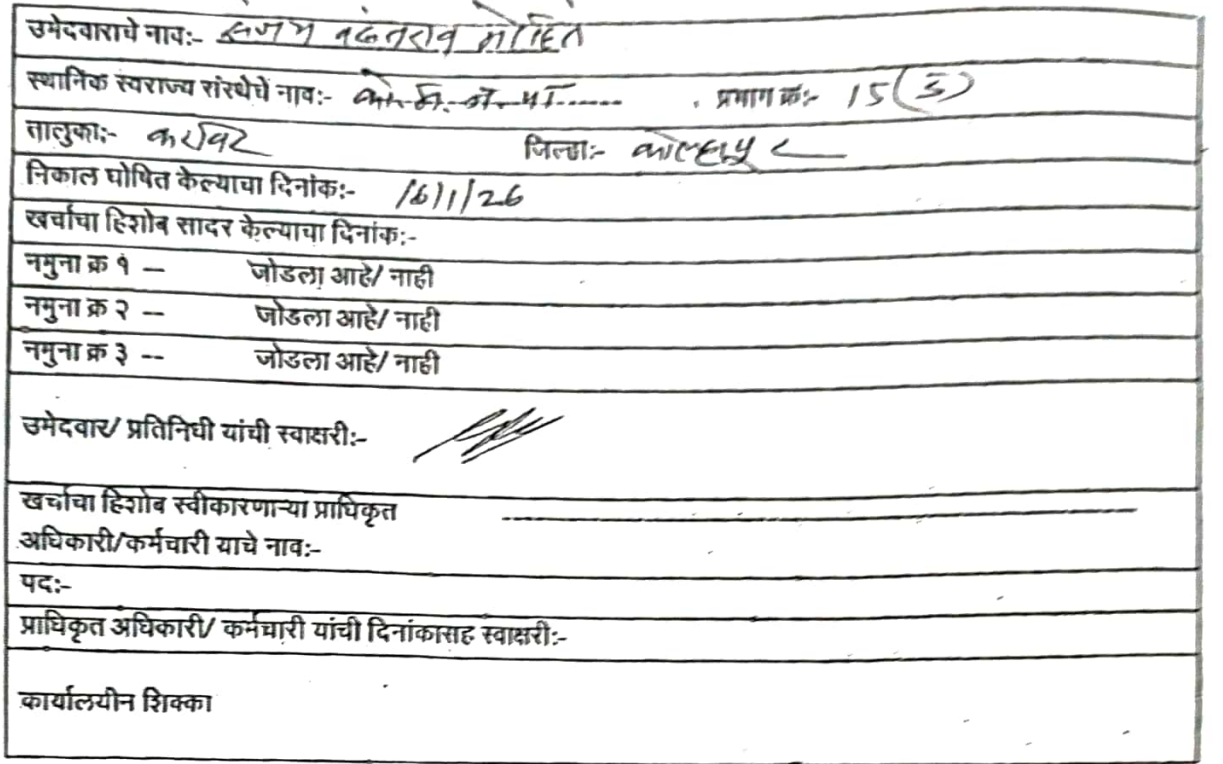 उमेदवाराचे नावः- संजय वसंतराव मोहिते
स्थानिक स्वराज्य संस्थेचे नावः- को.म.न.पा...... प्रभाग क्रः- 15 (ड)
तालुकाः- करविर जिल्हाः- कोल्हापूर
निकाल घोषित केल्याचा दिनांकः- 16/1/26
खर्चाचा हिशोब सादर केल्याचा दिनांकः-
नमुना क्र १ — जोडला आहे/ नाही
नमुना क्र २ -- जोडला आहे/ नाही
नमुना क्र ३ -- जोडला आहे/ नाही
उमेदवार/ प्रतिनिधी यांची स्वाक्षरीः-
खर्चाचा हिशोब स्वीकारणाऱ्या प्राधिकृत
अधिकारी/कर्मचारी याचे नावः-
पदः-
प्राधिकृत अधिकारी/ कर्मचारी यांची दिनांकासह स्वाक्षरीः-
कार्यालयीन शिक्का